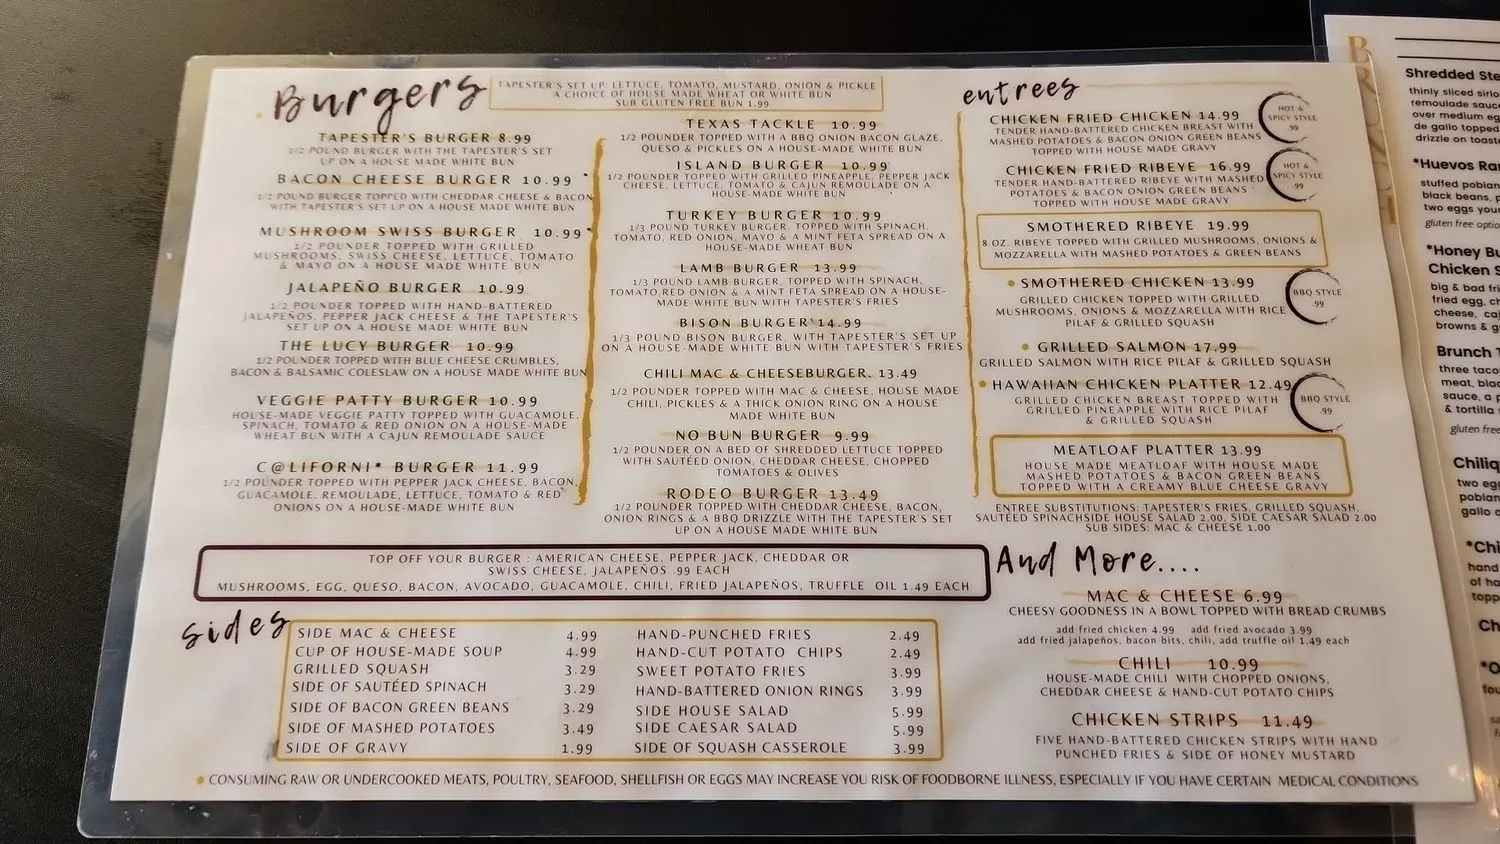 Burgers
TAPESTER'S SET UP: LETTUCE, TOMATO, MUSTARD, ONION & PICKLE
A CHOICE OF HOUSE MADE WHEAT OR WHITE BUN
SUB GLUTEN FREE BUN 1.99
TAPESTER'S BURGER 8.99
1/2 POUND BURGER WITH THE TAPESTER'S SET
UP ON A HOUSE MADE WHITE BUN
BACON CHEESE BURGER 10.99
1/2 POUND BURGER TOPPED WITH CHEDDAR CHEESE & BACON
WITH TAPESTER'S SET UP ON A HOUSE MADE WHITE BUN
MUSHROOM SWISS BURGER 10.99
1/2 POUNDER TOPPED WITH GRILLED
MUSHROOMS, SWISS CHEESE, LETTUCE, TOMATO
& MAYO ON A HOUSE MADE WHITE BUN
JALAPEÑO BURGER 10.99
1/2 POUNDER TOPPED WITH HAND-BATTERED
JALAPEÑOS, PEPPER JACK CHEESE & THE TAPESTER'S
SET UP ON A HOUSE MADE WHITE BUN
THE LUCY BURGER 10.99
1/2 POUNDER TOPPED WITH BLUE CHEESE CRUMBLES,
BACON & BALSAMIC COLESLAW ON A HOUSE MADE WHITE BUN
VEGGIE PATTY BURGER 10.99
HOUSE-MADE VEGGIE PATTY TOPPED WITH GUACAMOLE,
SPINACH, TOMATO & RED ONION ON A HOUSE-MADE
WHEAT BUN WITH A CAJUN REMOULADE SAUCE
C@LIFORNI* BURGER 11.99
1/2 POUNDER TOPPED WITH PEPPER JACK CHEESE, BACON,
GUACAMOLE, REMOULADE, LETTUCE, TOMATO & RED
ONIONS ON A HOUSE MADE WHITE BUN
TEXAS TACKLE 10.99
1/2 POUNDER TOPPED WITH A BBQ ONION BACON GLAZE,
QUESO & PICKLES ON A HOUSE-MADE WHITE BUN
ISLAND BURGER 10.99
1/2 POUNDER TOPPED WITH GRILLED PINEAPPLE, PEPPER JACK
CHEESE, LETTUCE, TOMATO & CAJUN REMOULADE ON A
HOUSE-MADE WHITE BUN
TURKEY BURGER 10.99
1/3 POUND TURKEY BURGER, TOPPED WITH SPINACH,
TOMATO, RED ONION, MAYO & A MINT FETA SPREAD ON A
HOUSE-MADE WHEAT BUN
LAMB BURGER 13.99
1/3 POUND LAMB BURGER, TOPPED WITH SPINACH,
TOMATO,RED ONION & A MINT FETA SPREAD ON A HOUSE-
MADE WHITE BUN WITH TAPESTER'S FRIES
BISON BURGER 14.99
1/3 POUND BISON BURGER, WITH TAPESTER'S SET UP
ON A HOUSE-MADE WHITE BUN WITH TAPESTER'S FRIES
CHILI MAC & CHEESEBURGER. 13.49
1/2 POUNDER TOPPED WITH MAC & CHEESE, HOUSE MADE
CHILI, PICKLES & A THICK ONION RING ON A HOUSE
MADE WHITE BUN
NO BUN BURGER 9.99
1/2 POUNDER ON A BED OF SHREDDED LETTUCE TOPPED
WITH SAUTÉED ONION, CHEDDAR CHEESE, CHOPPED
TOMATOES & OLIVES
RODEO BURGER 13.49
1/2 POUNDER TOPPED WITH CHEDDAR CHEESE, BACON,
ONION RINGS & A BBQ DRIZZLE WITH THE TAPESTER'S SET
UP ON A HOUSE MADE WHITE BUN
TOP OFF YOUR BURGER : AMERICAN CHEESE, PEPPER JACK, CHEDDAR OR
SWISS CHEESE, JALAPEÑOS .99 EACH
MUSHROOMS, EGG, QUESO, BACON, AVOCADO, GUACAMOLE, CHILI, FRIED JALAPEÑOS, TRUFFLE OIL 1.49 EACH
sides
SIDE MAC & CHEESE 4.99
CUP OF HOUSE-MADE SOUP 4.99
GRILLED SQUASH 3.29
SIDE OF SAUTÉED SPINACH 3.29
SIDE OF BACON GREEN BEANS 3.29
SIDE OF MASHED POTATOES 3.49
SIDE OF GRAVY 1.99
HAND-PUNCHED FRIES 2.49
HAND-CUT POTATO CHIPS 2.49
SWEET POTATO FRIES 3.99
HAND-BATTERED ONION RINGS 3.99
SIDE HOUSE SALAD 5.99
SIDE CAESAR SALAD 5.99
SIDE OF SQUASH CASSEROLE 3.99
entrees
CHICKEN FRIED CHICKEN 14.99
TENDER HAND-BATTERED CHICKEN BREAST WITH
MASHED POTATOES & BACON ONION GREEN BEANS
TOPPED WITH HOUSE MADE GRAVY
HOT &
SPICY STYLE
.99
CHICKEN FRIED RIBEYE 16.99
TENDER HAND-BATTERED RIBEYE WITH MASHED
POTATOES & BACON ONION GREEN BEANS
TOPPED WITH HOUSE MADE GRAVY
HOT &
SPICY STYLE
.99
SMOTHERED RIBEYE 19.99
8 OZ. RIBEYE TOPPED WITH GRILLED MUSHROOMS, ONIONS &
MOZZARELLA WITH MASHED POTATOES & GREEN BEANS
• SMOTHERED CHICKEN 13.99
GRILLED CHICKEN TOPPED WITH GRILLED
MUSHROOMS, ONIONS & MOZZARELLA WITH RICE
PILAF & GRILLED SQUASH
BBQ STYLE
.99
• GRILLED SALMON 17.99
GRILLED SALMON WITH RICE PILAF & GRILLED SQUASH
• HAWAIIAN CHICKEN PLATTER 12.49
GRILLED CHICKEN BREAST TOPPED WITH
GRILLED PINEAPPLE WITH RICE PILAF
& GRILLED SQUASH
BBQ STYLE
.99
MEATLOAF PLATTER 13.99
HOUSE MADE MEATLOAF WITH HOUSE MADE
MASHED POTATOES & BACON GREEN BEANS
TOPPED WITH A CREAMY BLUE CHEESE GRAVY
ENTREE SUBSTITUTIONS: TAPESTER'S FRIES, GRILLED SQUASH,
SAUTÉED SPINACHSIDE HOUSE SALAD 2.00, SIDE CAESAR SALAD 2.00
SUB SIDES: MAC & CHEESE 1.00
And More....
MAC & CHEESE 6.99
CHEESY GOODNESS IN A BOWL TOPPED WITH BREAD CRUMBS
add fried chicken 4.99 add fried avocado 3.99
add fried jalapeños, bacon bits, chili, add truffle oil 1.49 each
CHILI 10.99
HOUSE-MADE CHILI WITH CHOPPED ONIONS,
CHEDDAR CHEESE & HAND-CUT POTATO CHIPS
CHICKEN STRIPS 11.49
FIVE HAND-BATTERED CHICKEN STRIPS WITH HAND
PUNCHED FRIES & SIDE OF HONEY MUSTARD
• CONSUMING RAW OR UNDERCOOKED MEATS, POULTRY, SEAFOOD, SHELLFISH OR EGGS MAY INCREASE YOU RISK OF FOODBORNE ILLNESS, ESPECIALLY IF YOU HAVE CERTAIN MEDICAL CONDITIONS
Shredded
thinly sliced
remoulade
over medium
de gallo topped
drizzle on
*Huevos
stuffed
black beans,
two eggs your
gluten free
*Honey
Chicken
big & bad
fried egg,
cheese,
browns &
Brunch
three
meat,
sauce, a
& tortilla
gluten free
two
gallo
hand
of